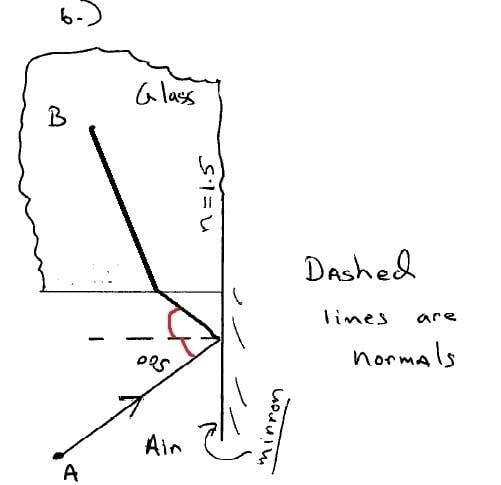 6.)
Glass
B
n=1.5
Dashed
lines are
normals
50°
Air
mirror
A